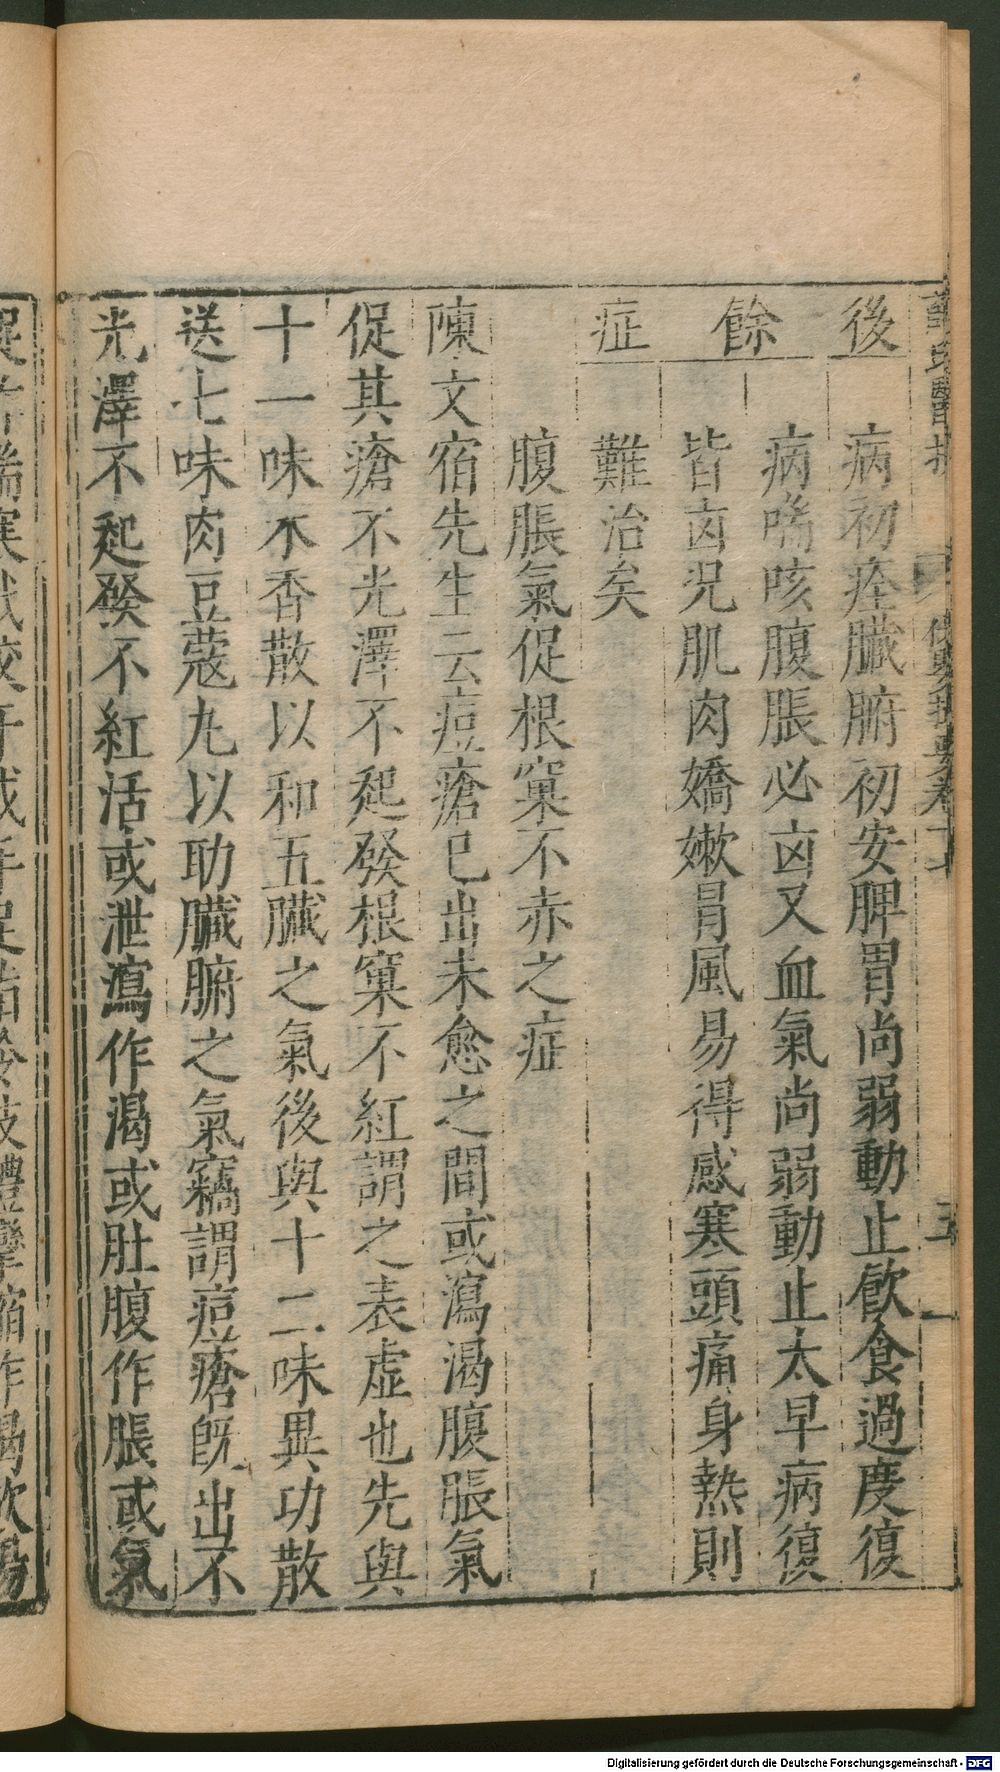 後 餘 症
病初痊臟腑初安脾胃尚弱動止飲食過度復
病喘咳腹脹必凶又血氣尚弱動止太早病復
皆凶況肌肉嬌嫩冒風易得感寒頭痛身熱則
難治矣
腹脹氣促根窠不赤之症
陳文宿先生云痘瘡已出未愈之間或瀉渴腹脹氣
促其瘡不光澤不起發根窠不紅謂之表虛也先與
十一味木香散以和五臟之氣後與十二味異功散
送七味肉豆蔻丸以助臟腑之氣竊謂痘瘡既出不
光澤不起發不紅活或泄瀉作渴或肚腹作脹或氣
Digitalisierung gefördert durch die Deutsche Forschungsgemeinschaft - DFG